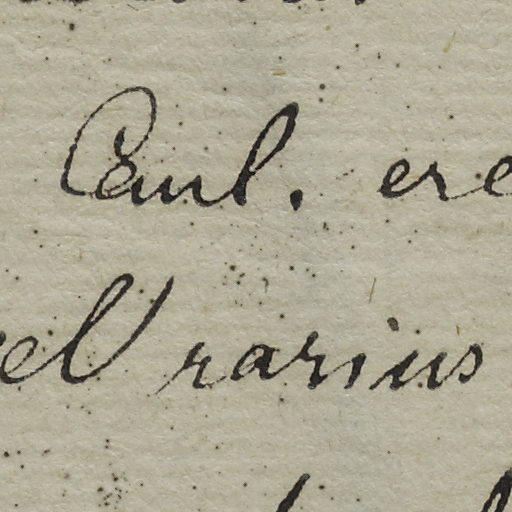 Caul. ere
vel rarius